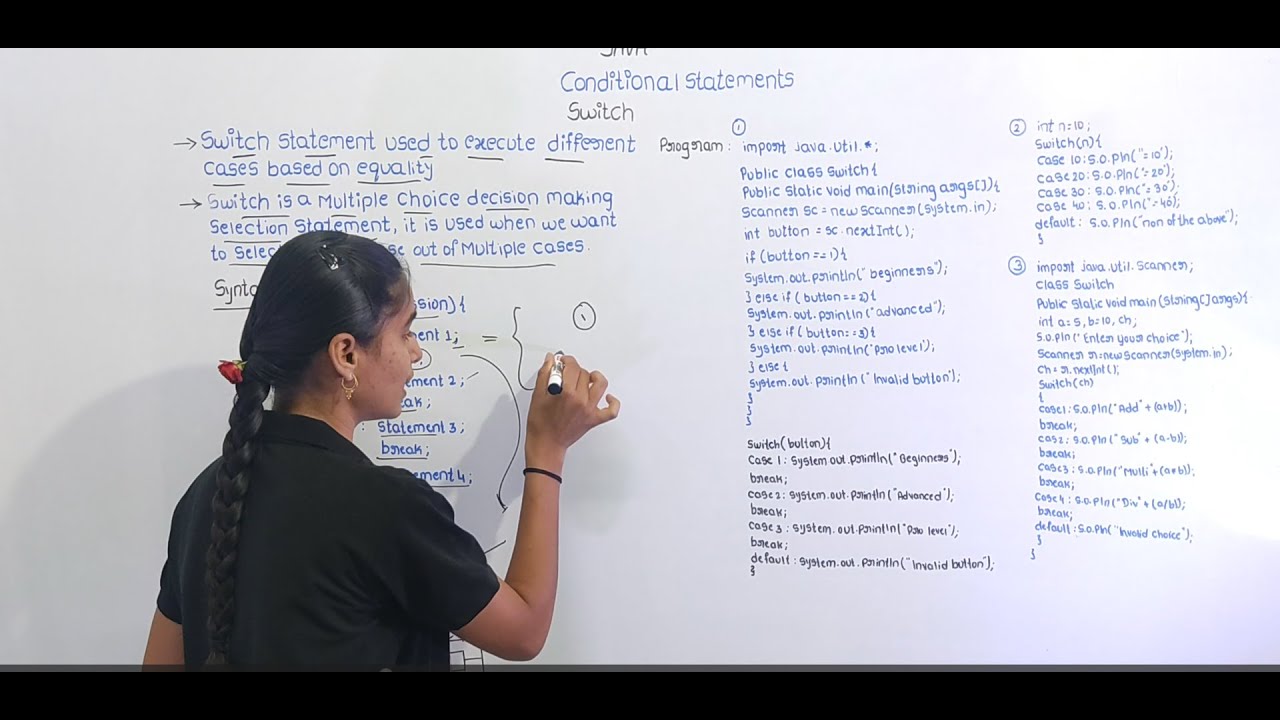 JAVA
Conditional statements
Switch
→ Switch statement used to execute different
cases based on equality
→ Switch is a Multiple choice decision making
Selection Statement, it is used when we want
to Select out of Multiple cases.
Synta
sion) {
ment 1;
=
{
1
ement 2;
eak;
: Statement 3;
break;
ement 4;
Program: ①
import java.util.*;
Public class Switch{
Public Static void main(String args[]){
Scanner sc = new Scanner(System.in);
int button = sc.nextInt();
if (button == 1){
System.out.println("beginners");
} else if (button == 2){
System.out.println("advanced");
} else if (button == 3){
System.out.println("Pro level");
} else {
System.out.println("Invalid button");
}
}
}
Switch(button){
Case 1: System.out.println("Beginners");
break;
case 2: System.out.println("Advanced");
break;
case 3: System.out.println("Pro level");
break;
default: System.out.println("Invalid button");
}
② int n=10;
Switch(n){
Case 10: S.O.Pln("=10");
case 20: S.O.Pln("=20");
case 30: S.O.Pln("=30");
case 40: S.O.Pln("=40);
default: S.O.Pln("non of the above");
}
③ import java.util.Scanner;
Class Switch
Public Static void main(String[] args){
int a=5, b=10, ch;
S.O.Pln("Enter your choice");
Scanner r=new Scanner(System.in);
Ch = r.nextInt();
Switch(ch)
{
case1: S.O.Pln("Add" + (a+b));
break;
cas2: S.O.Pln("Sub" + (a-b));
break;
case3: S.O.Pln("Multi"+(a*b));
break;
Case4: S.O.Pln("Div"+(a/b));
break;
default: S.O.Pln("Invalid choice");
}
}